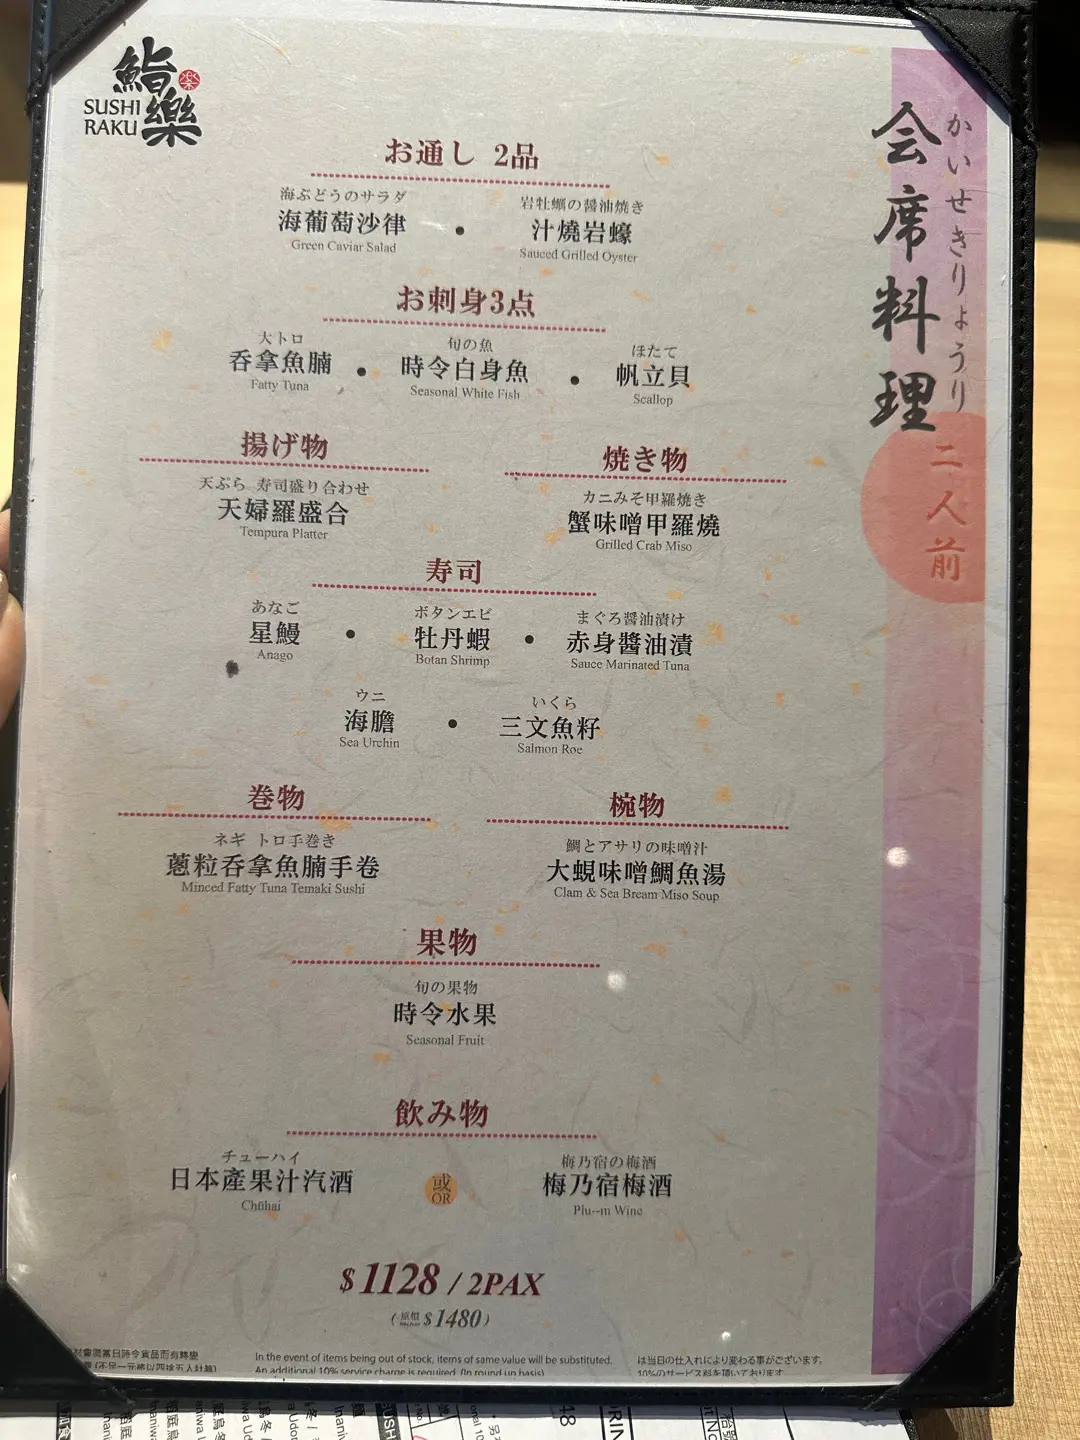 鮨樂
楽
SUSHI
RAKU
会席料理
かいせきりょうり
二人前
お通し 2品
海ぶどうのサラダ
海葡萄沙律
Green Caviar Salad
岩牡蠣の醤油焼き
汁燒岩蠔
Sauced Grilled Oyster
お刺身3点
大トロ
吞拿魚腩
Fatty Tuna
旬の魚
時令白身魚
Seasonal White Fish
ほたて
帆立貝
Scallop
揚げ物
天ぷら 寿司盛り合わせ
天婦羅盛合
Tempura Platter
焼き物
カニみそ甲羅焼き
蟹味噌甲羅燒
Grilled Crab Miso
寿司
あなご
星鰻
Anago
ボタンエビ
牡丹蝦
Botan Shrimp
まぐろ醤油漬け
赤身醬油漬
Sauce Marinated Tuna
ウニ
海膽
Sea Urchin
いくら
三文魚籽
Salmon Roe
巻物
ネギ トロ手巻き
蔥粒吞拿魚腩手卷
Minced Fatty Tuna Temaki Sushi
椀物
鯛とアサリの味噌汁
大蜆味噌鯛魚湯
Clam & Sea Bream Miso Soup
果物
旬の果物
時令水果
Seasonal Fruit
飲み物
チューハイ
日本產果汁汽酒
Chūhai
或
OR
梅乃宿の梅酒
梅乃宿梅酒
Plu--m Wine
$1128 / 2PAX
(原價 $1480)
材會因當日時令貨品而有轉變
(不足一元將以四捨五入計算)
In the event of items being out of stock, items of same value will be substituted.
An additional 10% service charge is required. (In round up basis)
は当日の仕入れにより変わる事がございます。
10%のサービス料を頂いております